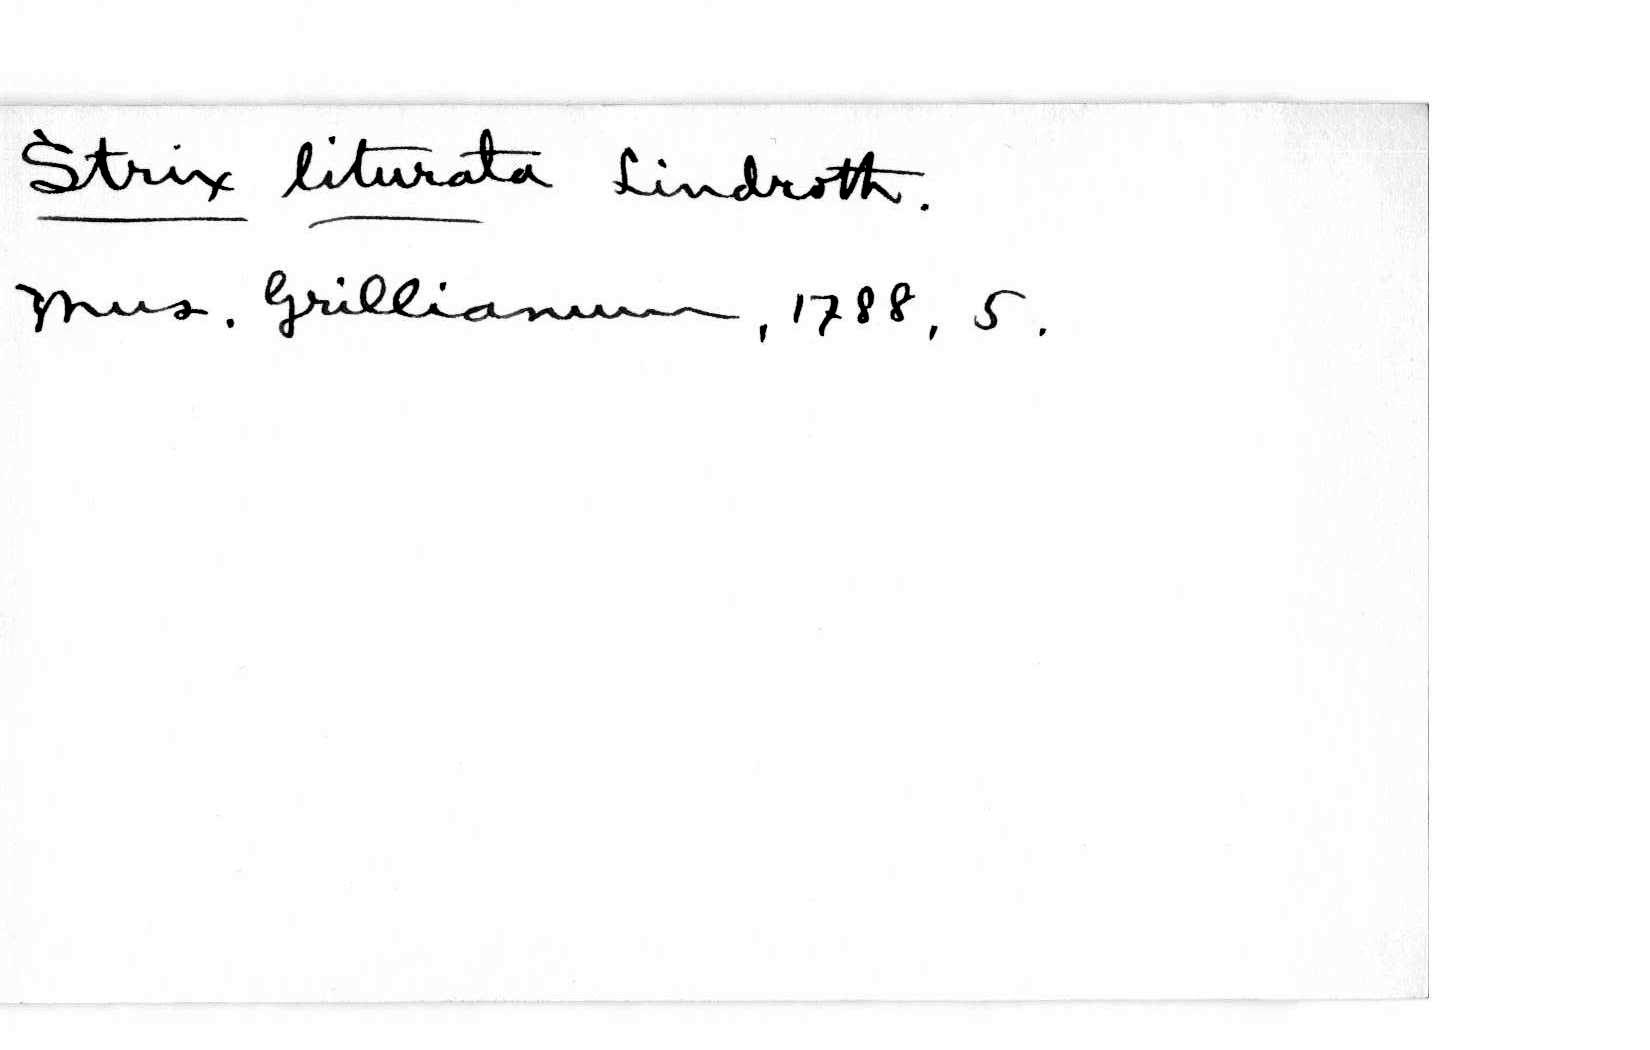 Strix liturata Lindroth.
Mus. Grillianum, 1788, 5.